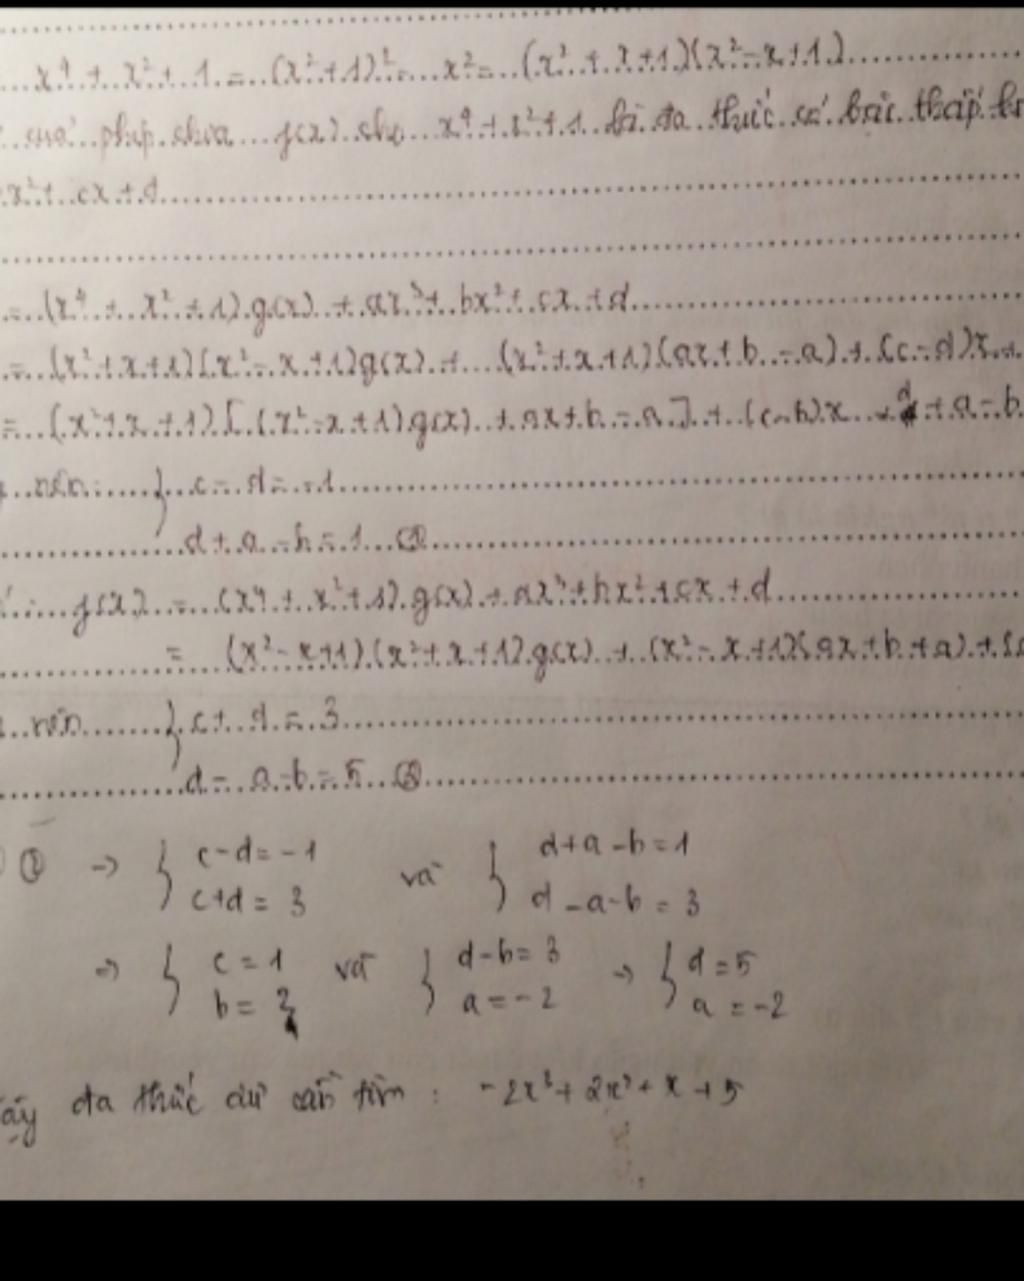 x⁴ + x² + 1 = (x²+1)² - x² = (x² + x+1)(x²-x+1)
của phép chia f(x) cho x⁴+x²+1 là đa thức có bậc thấp
x² + cx + d
= (x⁴ + x² + 1).g(x) + ax³ + bx² + cx + d
= (x²+x+1)(x²-x+1)g(x) + (x²+x+1)(ax+b-a)+(c-d)x+
= (x²+x+1)[(x²-x+1)g(x) + ax+b-a]+(c-b)x + d+a-b
nên { c-d=-1
d+a-b=1
f(x) = (x⁴+x²+1).g(x)+ax³+bx²+cx+d
= (x²-x+1)(x²+x+1).g(x) + (x²-x+1)(ax+b+a)+(c
nên { c+d=3
d-a-b=5
② → { c-d=-1 và { d+a-b=1
c+d=3 d-a-b=3
→ { c=1 và { d-b=3 → { d=5
b=2 a=-2 a=-2
ậy đa thức dư cần tìm : -2x³+2x²+x+5